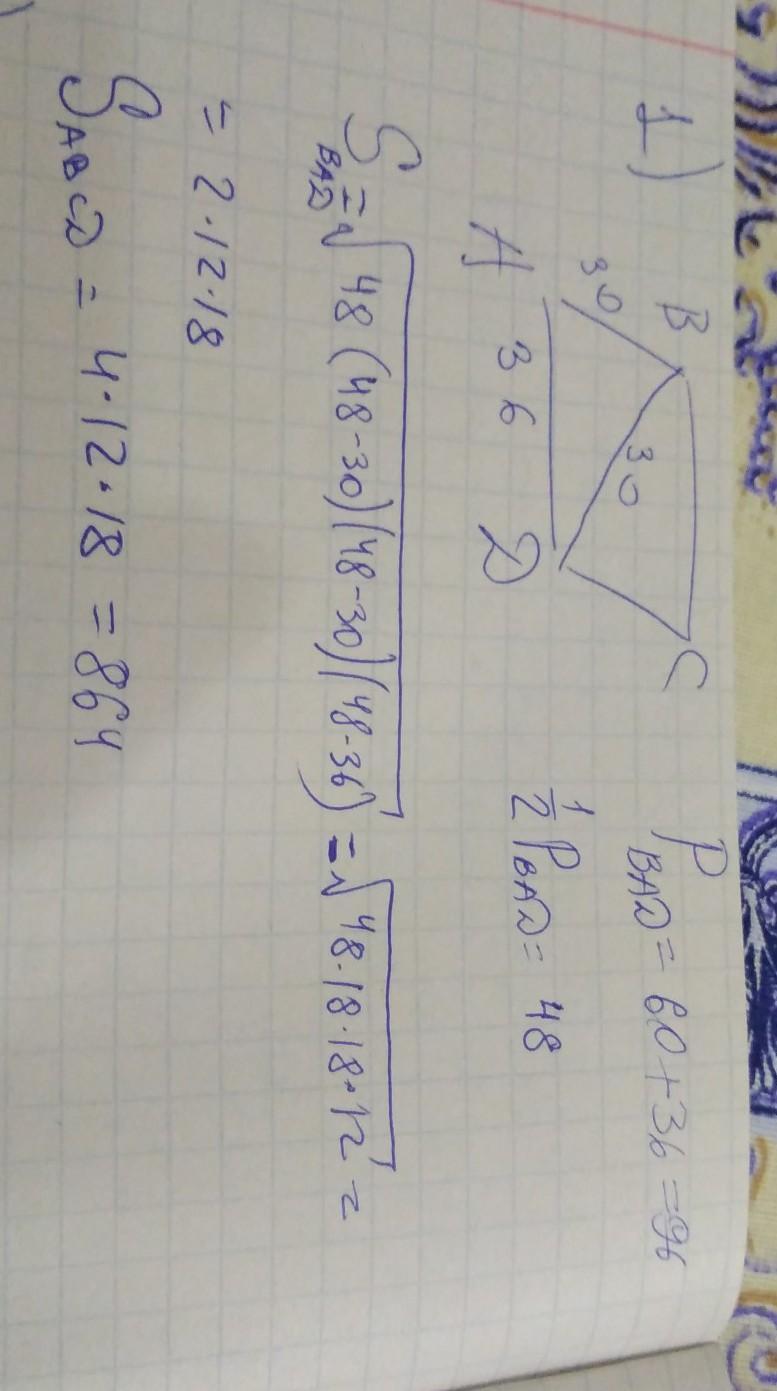 1)
B C
30 30
A 36 D
P_BAD = 60 + 36 = 96
1/2 P_BAD = 48
S_BAD = √48(48-30)(48-30)(48-36) = √48·18·18·12 =
= 2·12·18
S_ABCD = 4·12·18 = 864